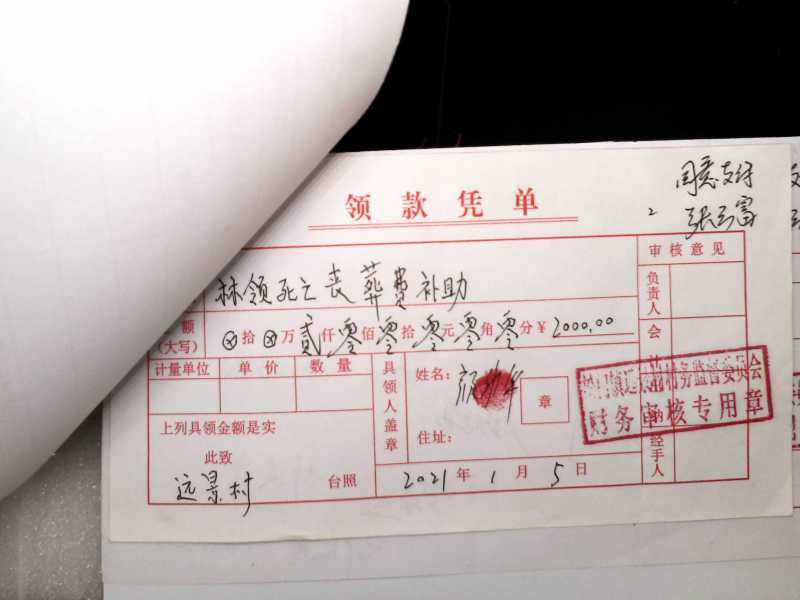 同意支付
张云富
领款凭单
审核意见
林领死亡丧葬费补助
负责人
额
(大写)
⊗拾⊗万贰仟零佰零拾零元零角零分¥2000.00
会
计量单位 单价 数量
具领人盖章
姓名:
章
村务监督委员会
财务审核专用章
上列具领金额是实
住址:
经手人
此致
远景村 台照
2021年1月5日